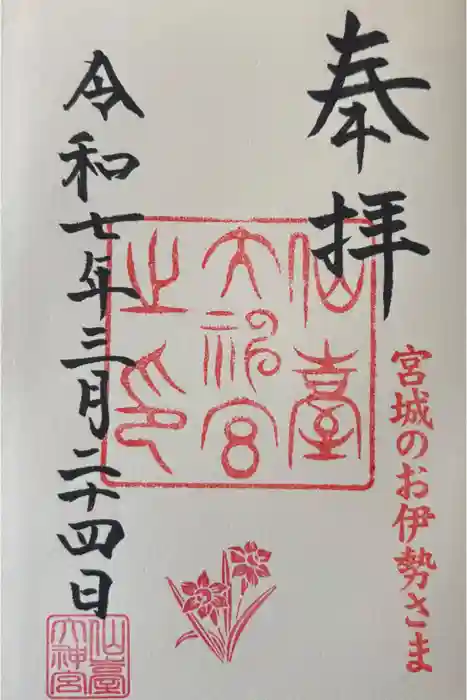 奉拝
宮城のお伊勢さま
仙臺
大神宮
之印
令和七年三月二十四日
仙臺
大神宮